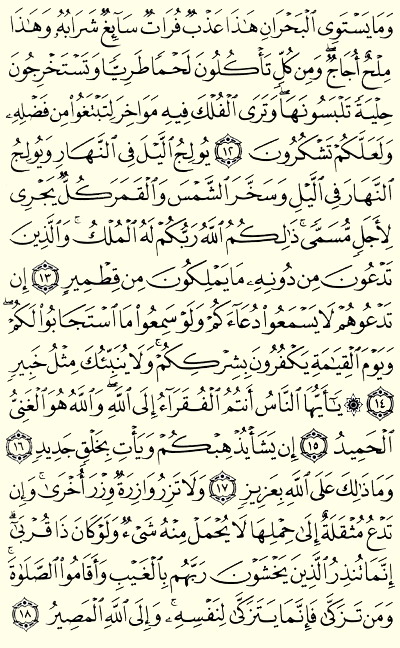 وَمَا يَسْتَوِى ٱلْبَحْرَانِ هَٰذَا عَذْبٌ فُرَاتٌ سَآئِغٌ شَرَابُهُۥ وَهَٰذَا
مِلْحٌ أُجَاجٌ ۖ وَمِن كُلٍّ تَأْكُلُونَ لَحْمًا طَرِيًّا وَتَسْتَخْرِجُونَ
حِلْيَةً تَلْبَسُونَهَا ۖ وَتَرَى ٱلْفُلْكَ فِيهِ مَوَاخِرَ لِتَبْتَغُوا۟ مِن فَضْلِهِۦ
وَلَعَلَّكُمْ تَشْكُرُونَ ١٢ يُولِجُ ٱلَّيْلَ فِى ٱلنَّهَارِ وَيُولِجُ
ٱلنَّهَارَ فِى ٱلَّيْلِ وَسَخَّرَ ٱلشَّمْسَ وَٱلْقَمَرَ كُلٌّ يَجْرِى
لِأَجَلٍ مُّسَمًّى ۚ ذَٰلِكُمُ ٱللَّهُ رَبُّكُمْ لَهُ ٱلْمُلْكُ ۚ وَٱلَّذِينَ
تَدْعُونَ مِن دُونِهِۦ مَا يَمْلِكُونَ مِن قِطْمِيرٍ ١٣ إِن
تَدْعُوهُمْ لَا يَسْمَعُوا۟ دُعَآءَكُمْ وَلَوْ سَمِعُوا۟ مَا ٱسْتَجَابُوا۟ لَكُمْ ۖ
وَيَوْمَ ٱلْقِيَٰمَةِ يَكْفُرُونَ بِشِرْكِكُمْ ۚ وَلَا يُنَبِّئُكَ مِثْلُ خَبِيرٍ
١٤ ۞ يَٰٓأَيُّهَا ٱلنَّاسُ أَنتُمُ ٱلْفُقَرَآءُ إِلَى ٱللَّهِ ۖ وَٱللَّهُ هُوَ ٱلْغَنِىُّ
ٱلْحَمِيدُ ١٥ إِن يَشَأْ يُذْهِبْكُمْ وَيَأْتِ بِخَلْقٍ جَدِيدٍ ١٦
وَمَا ذَٰلِكَ عَلَى ٱللَّهِ بِعَزِيزٍ ١٧ وَلَا تَزِرُ وَازِرَةٌ وِزْرَ أُخْرَىٰ ۚ وَإِن
تَدْعُ مُثْقَلَةٌ إِلَىٰ حِمْلِهَا لَا يُحْمَلْ مِنْهُ شَىْءٌ وَلَوْ كَانَ ذَا قُرْبَىٰٓ ۗ
إِنَّمَا تُنذِرُ ٱلَّذِينَ يَخْشَوْنَ رَبَّهُم بِٱلْغَيْبِ وَأَقَامُوا۟ ٱلصَّلَوٰةَ ۚ
وَمَن تَزَكَّىٰ فَإِنَّمَا يَتَزَكَّىٰ لِنَفْسِهِۦ ۚ وَإِلَى ٱللَّهِ ٱلْمَصِيرُ ١٨